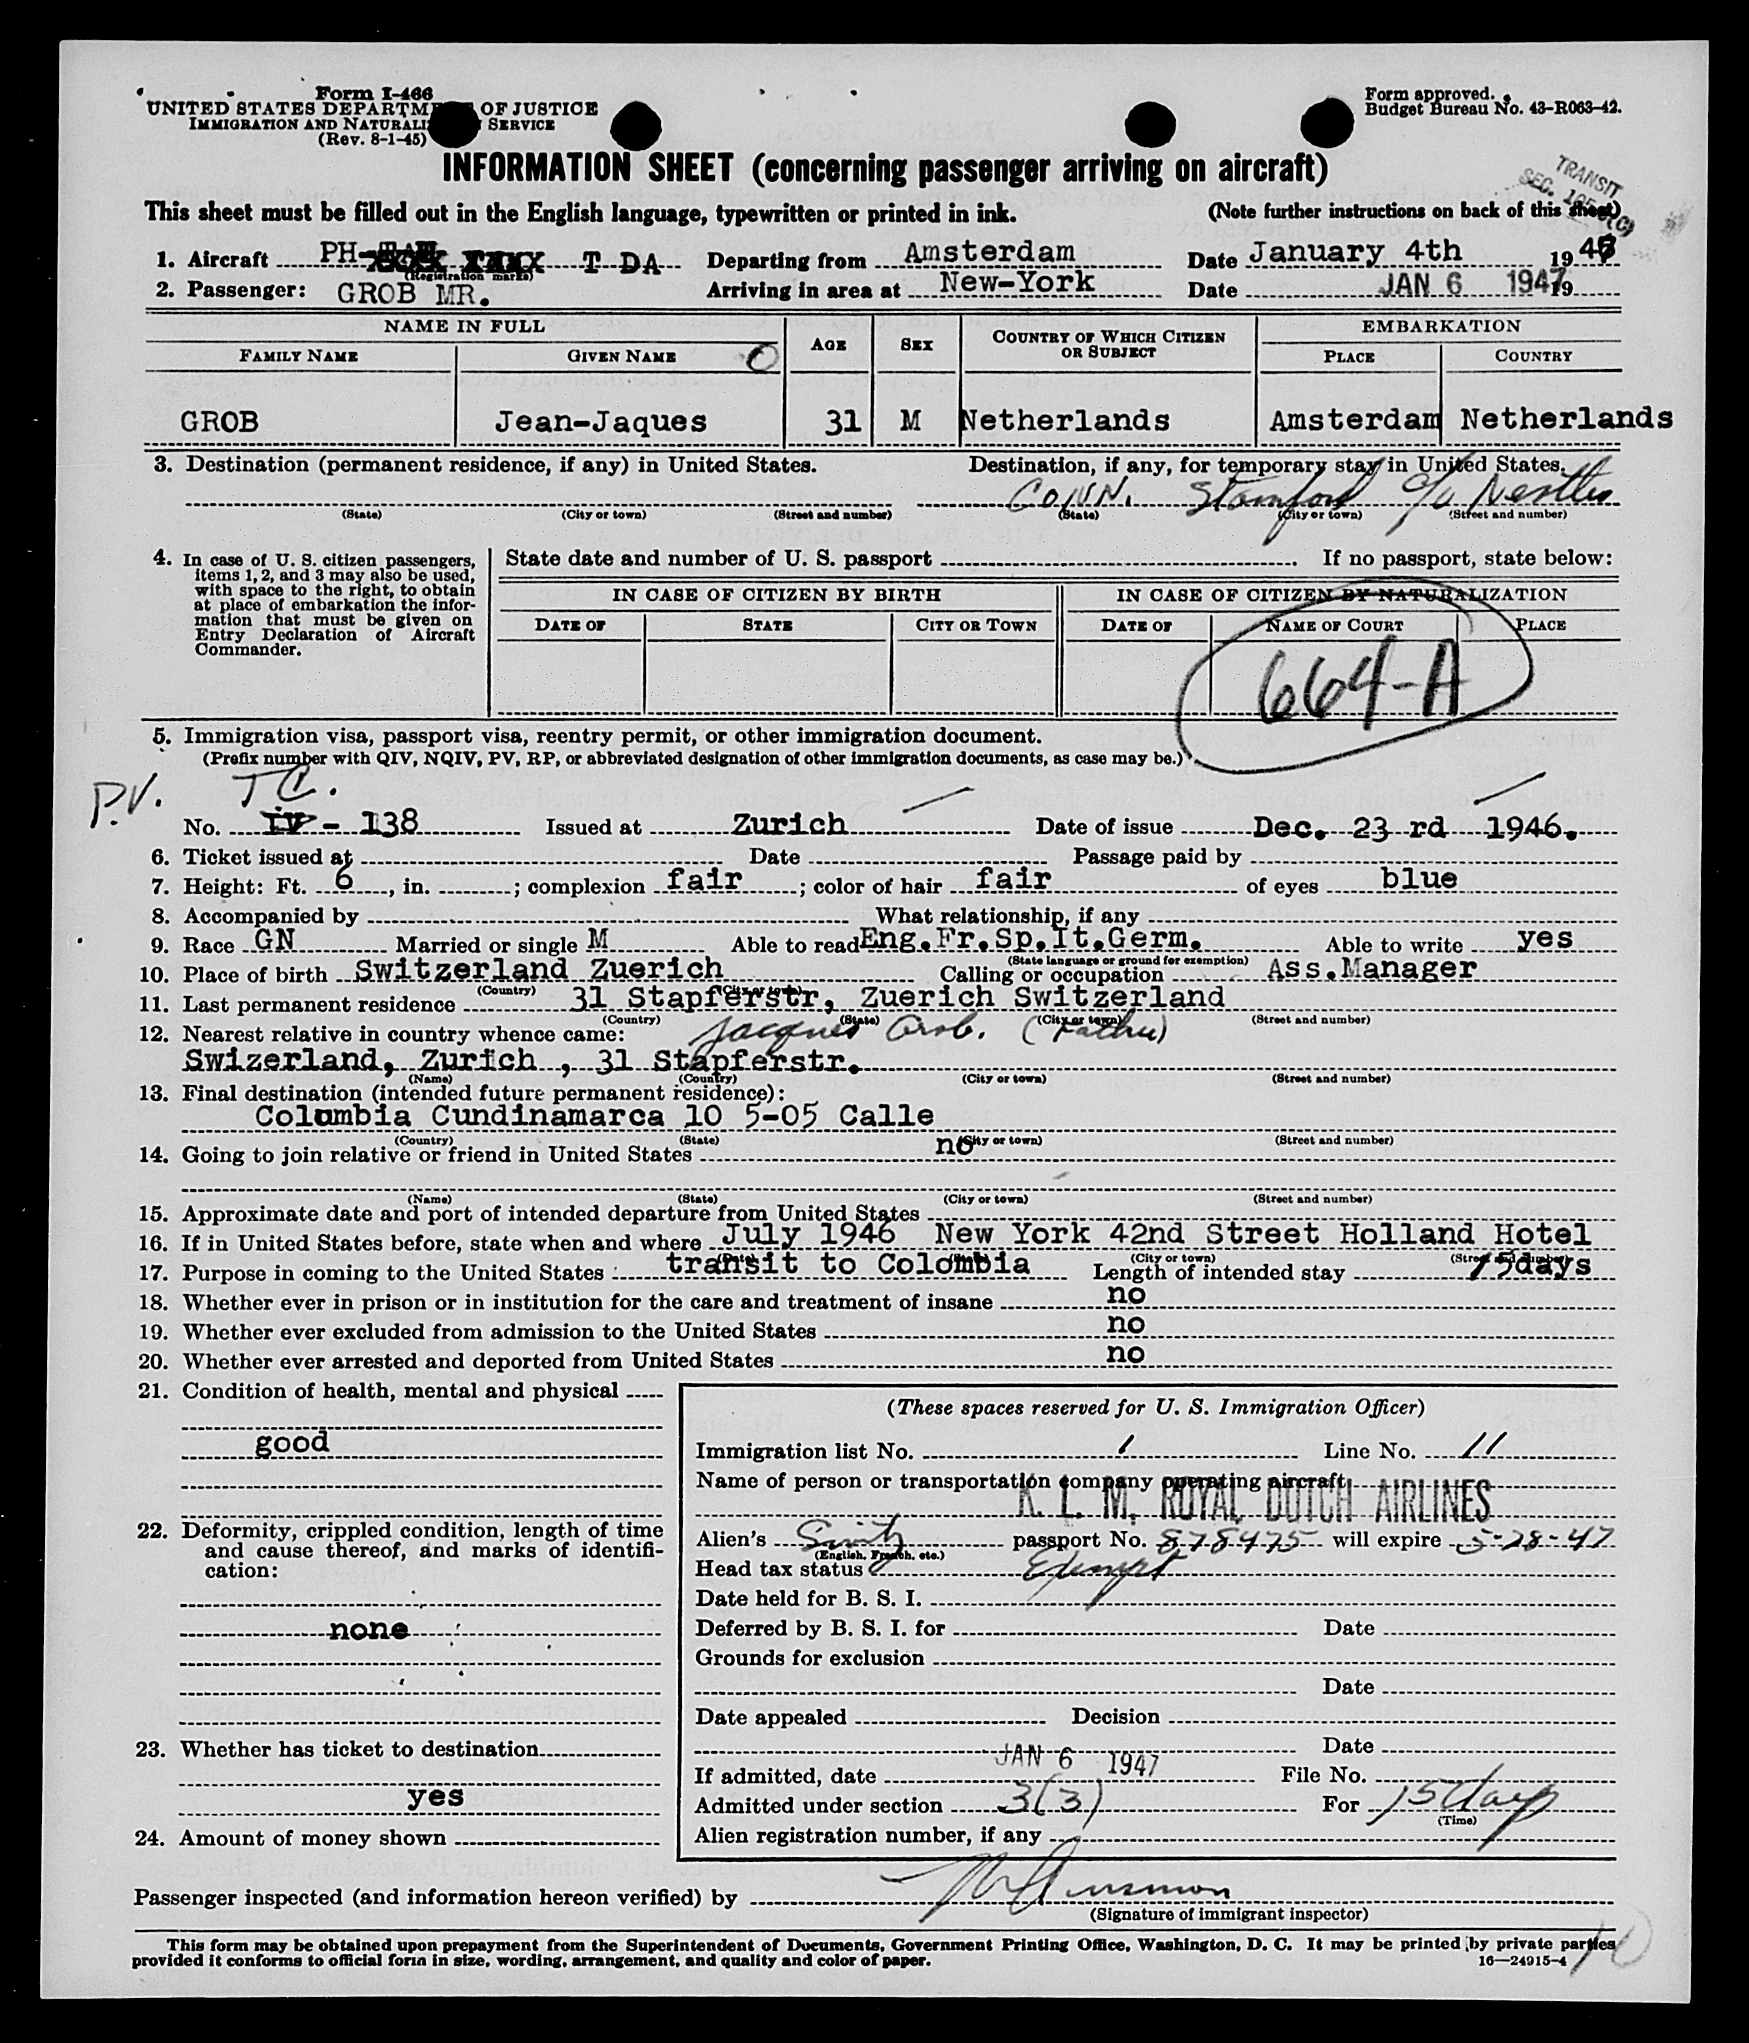 Form I-466
UNITED STATES DEPARTM OF JUSTICE
IMMIGRATION AND NATURALI SERVICE
(Rev. 8-1-45)
Form approved.
Budget Bureau No. 43-R063-42.
INFORMATION SHEET (concerning passenger arriving on aircraft)
TRANSIT
SEC.
This sheet must be filled out in the English language, typewritten or printed in ink. (Note further instructions on back of this sheet)
1. Aircraft PH- T DA Departing from Amsterdam Date January 4th 19
(Registration marks)
2. Passenger: GROB MR. Arriving in area at New-York Date JAN 6 1947 19
NAME IN FULL AGE SEX COUNTRY OF WHICH CITIZEN OR SUBJECT EMBARKATION
FAMILY NAME GIVEN NAME PLACE COUNTRY
GROB Jean-Jaques 31 M Netherlands Amsterdam Netherlands
3. Destination (permanent residence, if any) in United States. Destination, if any, for temporary stay in United States.
CONN. Stamford c/o Nestles
(State) (City or town) (Street and number) (State) (City or town) (Street and number)
4. In case of U. S. citizen passengers, items 1, 2, and 3 may also be used, with space to the right, to obtain at place of embarkation the information that must be given on Entry Declaration of Aircraft Commander.
State date and number of U. S. passport If no passport, state below:
IN CASE OF CITIZEN BY BIRTH IN CASE OF CITIZEN BY NATURALIZATION
DATE OF STATE CITY OR TOWN DATE OF NAME OF COURT PLACE
664-A
5. Immigration visa, passport visa, reentry permit, or other immigration document.
(Prefix number with QIV, NQIV, PV, RP, or abbreviated designation of other immigration documents, as case may be.)
P.V. TC.
No. IV - 138 Issued at Zurich Date of issue Dec. 23 rd 1946.
6. Ticket issued at Date Passage paid by
7. Height: Ft. 6, in. ; complexion fair ; color of hair fair of eyes blue
8. Accompanied by What relationship, if any
9. Race GN Married or single M Able to read Eng.Fr.Sp.It.Germ. Able to write yes
(State language or ground for exemption)
10. Place of birth Switzerland Zuerich Calling or occupation Ass.Manager
(Country) (City or town)
11. Last permanent residence 31 Stapferstr, Zuerich Switzerland
(Country) (State) (City or town) (Street and number)
12. Nearest relative in country whence came: Jacques Grob. (Father)
Swizerland, Zurich , 31 Stapferstr.
(Name) (Country) (City or town) (Street and number)
13. Final destination (intended future permanent residence):
Columbia Cundinamarca 10 5-05 Calle
(Country) (State) (City or town) (Street and number)
14. Going to join relative or friend in United States no
(Name) (State) (City or town) (Street and number)
15. Approximate date and port of intended departure from United States
16. If in United States before, state when and where July 1946 New York 42nd Street Holland Hotel
(Date) (State) (City or town) (Street and number)
17. Purpose in coming to the United States : transit to Colombia Length of intended stay 15days
18. Whether ever in prison or in institution for the care and treatment of insane no
19. Whether ever excluded from admission to the United States no
20. Whether ever arrested and deported from United States no
21. Condition of health, mental and physical
good
22. Deformity, crippled condition, length of time and cause thereof, and marks of identification:
none
23. Whether has ticket to destination
yes
24. Amount of money shown
(These spaces reserved for U. S. Immigration Officer)
Immigration list No. 1 Line No. 11
Name of person or transportation company operating aircraft
K. L. M. ROYAL DUTCH AIRLINES
Alien's Switz passport No. 878475 will expire 5-28-47
(English, French, etc.)
Head tax status Exempt
Date held for B. S. I.
Deferred by B. S. I. for Date
Grounds for exclusion
Date
Date appealed Decision
Date
If admitted, date JAN 6 1947 File No.
Admitted under section 3(3) For 15 days
(Time)
Alien registration number, if any
Passenger inspected (and information hereon verified) by
(Signature of immigrant inspector)
This form may be obtained upon prepayment from the Superintendent of Documents, Government Printing Office, Washington, D. C. It may be printed by private parties
provided it conforms to official form in size, wording, arrangement, and quality and color of paper. 16—24915-4